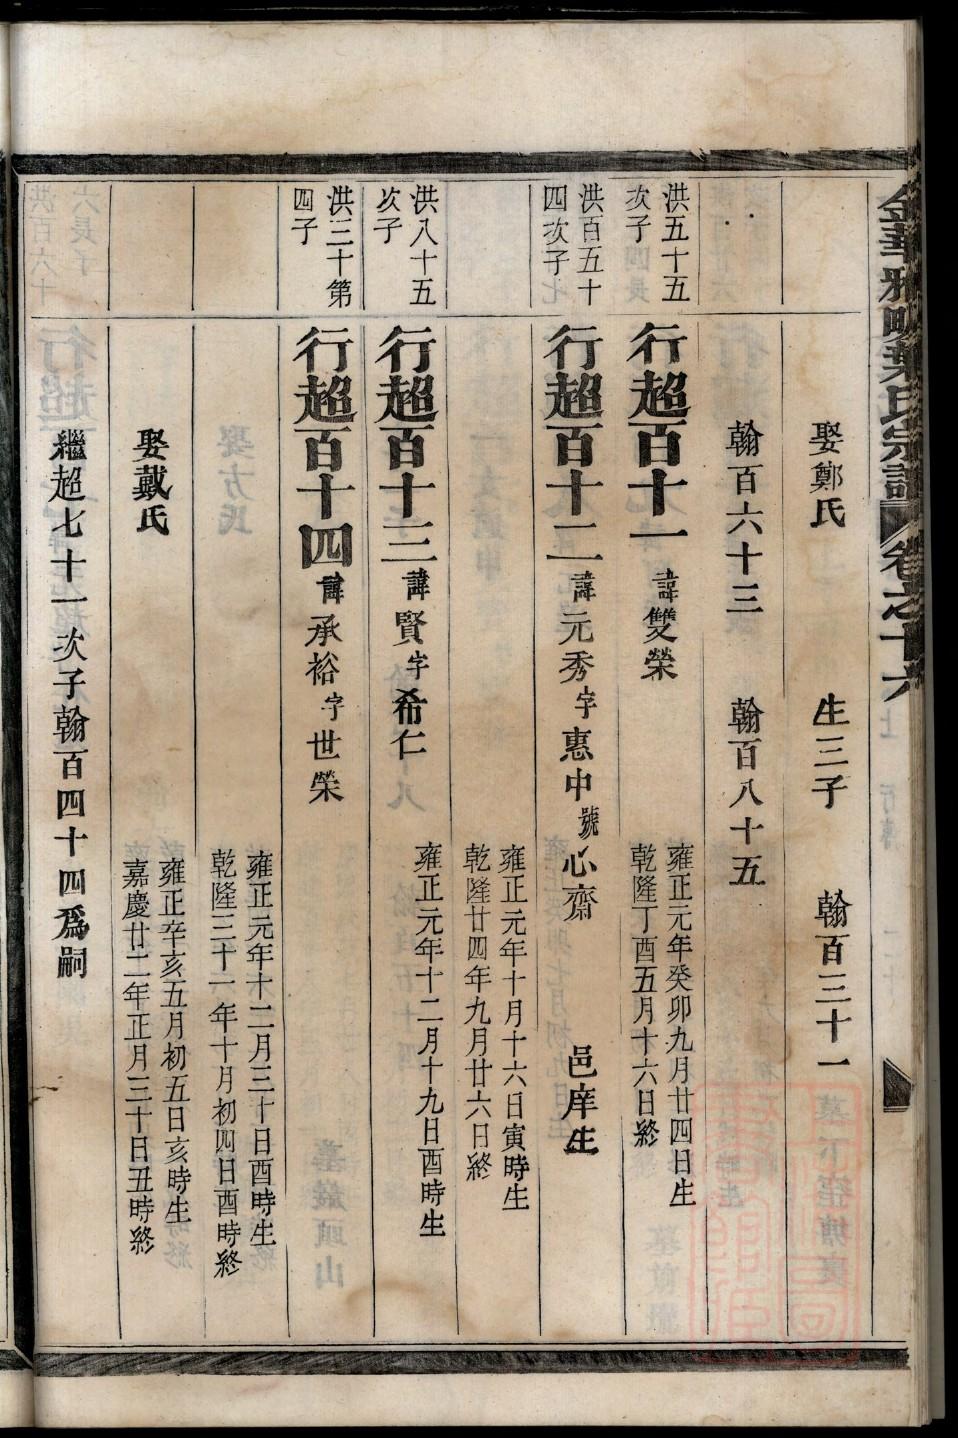 金華雅畈葉氏宗譜 卷之十六
娶鄭氏 生三子 翰百三十一
翰百六十三 翰百八十五
洪五十五次子
行超百十一 諱雙榮
雍正元年癸卯九月廿四日生
乾隆丁酉五月十六日終
洪百五十四次子
行超百十二 諱元秀字惠中號心齋 邑庠生
雍正元年十月十六日寅時生
乾隆廿四年九月廿六日終
洪八十五次子
行超百十三 諱賢字希仁
雍正元年十二月十九日酉時生
洪三十第四子
行超百十四 諱承裕字世榮
雍正元年十二月三十日酉時生
乾隆三十一年十月初四日酉時終
娶戴氏
雍正辛亥五月初五日亥時生
嘉慶廿二年正月三十日丑時終
繼超七十一次子翰百四十四爲嗣